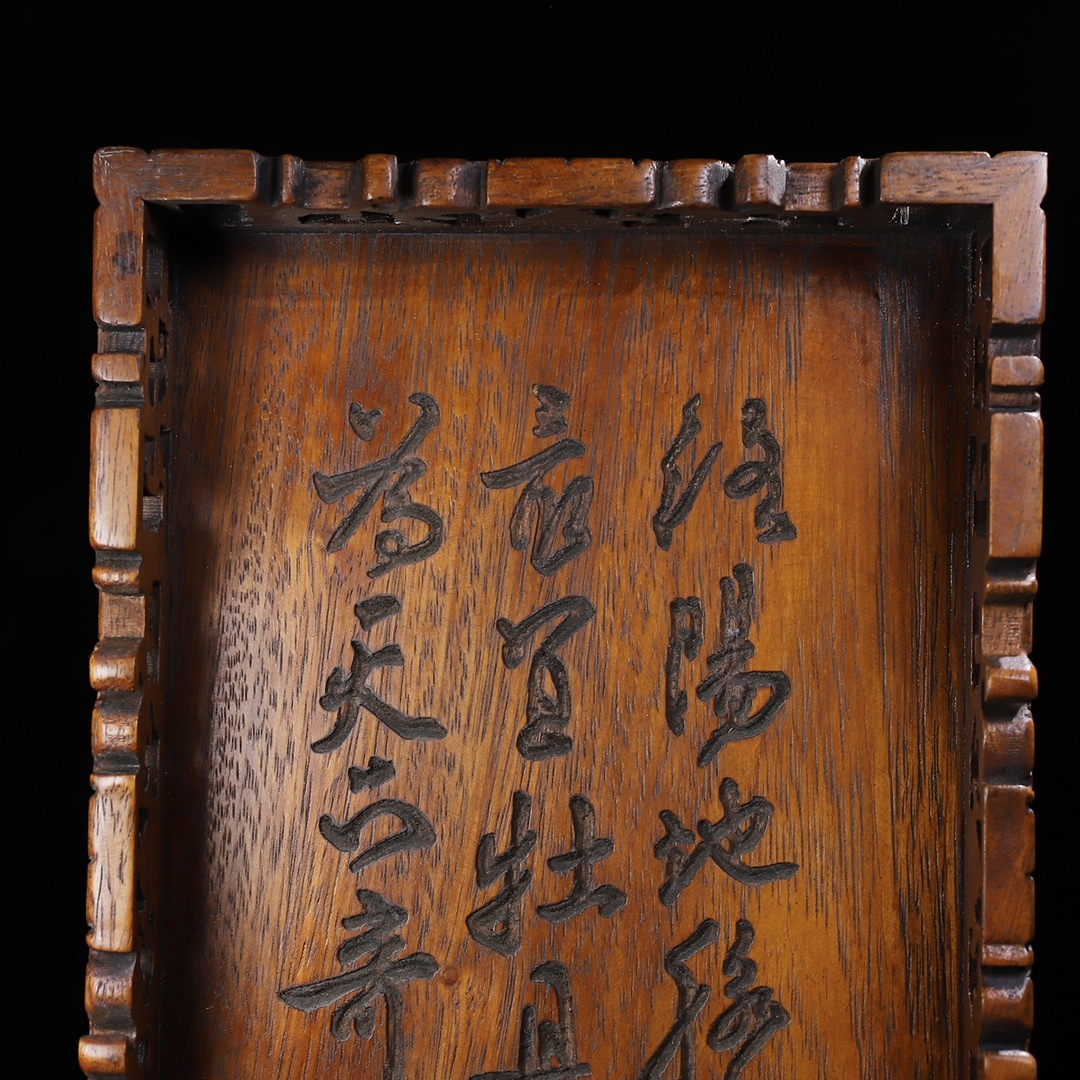 洛陽地脈
最宜牡丹
為天下奇